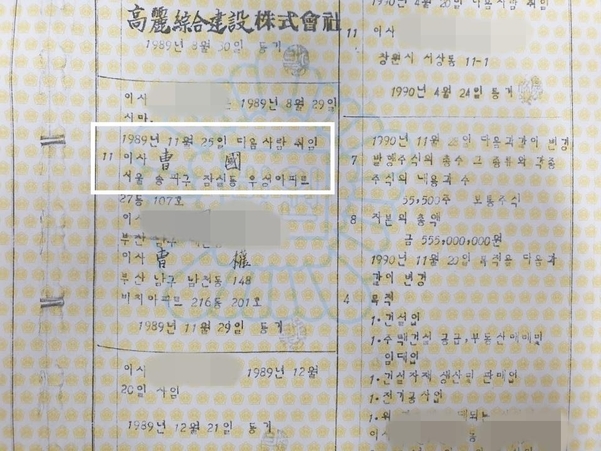 高麗綜合建設株式會社
1989년 8월 30일 등기
이사
1989년 8월 29일
사망
1989년 11월 25일 다음사람 취임
11 이사 曺 國
서울 송파구 잠실동 우성아파트
27동 107호
이사
부산 남구
이사 曺 權
부산 남구 남천동 148
비치아파트 216동 201호
1989년 11월 29일 등기
이사
1989년 12월
20일 사임
1989년 12월 21일 등기
11 이사
창원시 서상동 11-1
1990년 4월 24일 등기
1990년 11월 다음과같이 변경
7 발행주식의 총수 그 종류와 각종
주식의 내용과 수
55,500주 보통주식
8 자본의 총액
금 555,000,000원
1990년 11월 목적을 다음과
같이 변경
4 목적
1.건설업
1.주택건설 공급,부동산매매및
임대업
1.건설자재 생산및 판매업
1.전기공사업
이사